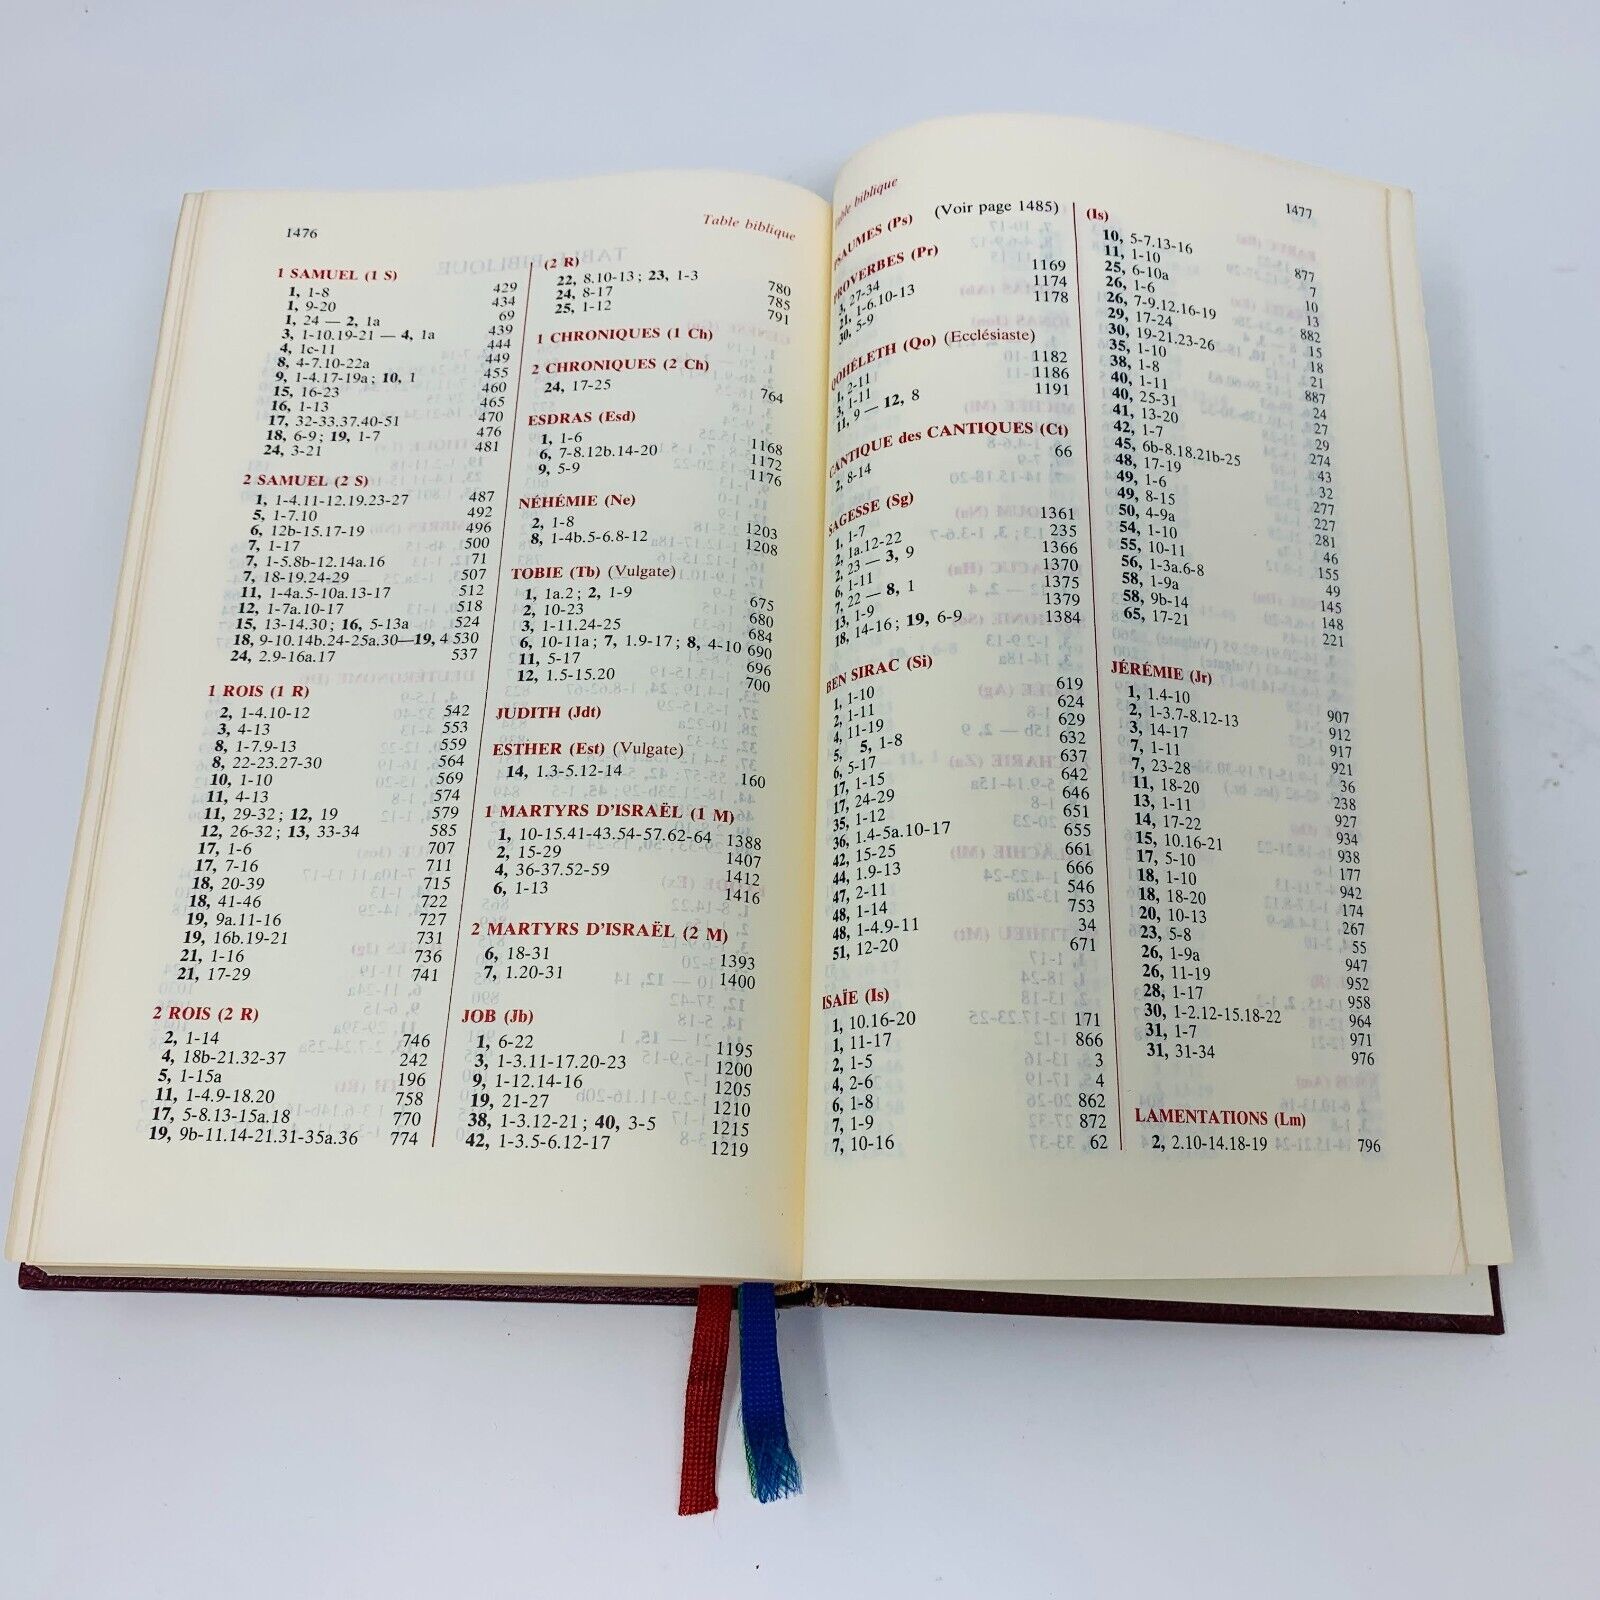 1476
Table biblique
1 SAMUEL (1 S)
1, 1-8 429
1, 9-20 434
1, 24 — 2, 1a 69
3, 1-10.19-21 — 4, 1a 439
4, 1c-11 444
8, 4-7.10-22a 449
9, 1-4.17-19a ; 10, 1 455
15, 16-23 460
16, 1-13 465
17, 32-33.37.40-51 470
18, 6-9 ; 19, 1-7 476
24, 3-21 481
2 SAMUEL (2 S)
1, 1-4.11-12.19.23-27 487
5, 1-7.10 492
6, 12b-15.17-19 496
7, 1-17 500
7, 1-5.8b-12.14a.16 71
7, 18-19.24-29 507
11, 1-4a.5-10a.13-17 512
12, 1-7a.10-17 518
15, 13-14.30 ; 16, 5-13a 524
18, 9-10.14b.24-25a.30—19, 4 530
24, 2.9-16a.17 537
1 ROIS (1 R)
2, 1-4.10-12 542
3, 4-13 553
8, 1-7.9-13 559
8, 22-23.27-30 564
10, 1-10 569
11, 4-13 574
11, 29-32 ; 12, 19 579
12, 26-32 ; 13, 33-34 585
17, 1-6 707
17, 7-16 711
18, 20-39 715
18, 41-46 722
19, 9a.11-16 727
19, 16b.19-21 731
21, 1-16 736
21, 17-29 741
2 ROIS (2 R)
2, 1-14 746
4, 18b-21.32-37 242
5, 1-15a 196
11, 1-4.9-18.20 758
17, 5-8.13-15a.18 770
19, 9b-11.14-21.31-35a.36 774
(2 R)
22, 8.10-13 ; 23, 1-3 780
24, 8-17 785
25, 1-12 791
1 CHRONIQUES (1 Ch)
2 CHRONIQUES (2 Ch)
24, 17-25 764
ESDRAS (Esd)
1, 1-6 1168
6, 7-8.12b.14-20 1172
9, 5-9 1176
NÉHÉMIE (Ne)
2, 1-8 1203
8, 1-4b.5-6.8-12 1208
TOBIE (Tb) (Vulgate)
1, 1a.2 ; 2, 1-9 675
2, 10-23 680
3, 1-11.24-25 684
6, 10-11a ; 7, 1.9-17 ; 8, 4-10 690
11, 5-17 696
12, 1.5-15.20 700
JUDITH (Jdt)
ESTHER (Est) (Vulgate)
14, 1.3-5.12-14 160
1 MARTYRS D'ISRAËL (1 M)
1, 10-15.41-43.54-57.62-64 1388
2, 15-29 1407
4, 36-37.52-59 1412
6, 1-13 1416
2 MARTYRS D'ISRAËL (2 M)
6, 18-31 1393
7, 1.20-31 1400
JOB (Jb)
1, 6-22 1195
3, 1-3.11-17.20-23 1200
9, 1-12.14-16 1205
19, 21-27 1210
38, 1-3.12-21 ; 40, 3-5 1215
42, 1-3.5-6.12-17 1219
Table biblique
1477
PSAUMES (Ps) (Voir page 1485)
PROVERBES (Pr)
3, 27-34 1169
21, 1-6.10-13 1174
30, 5-9 1178
QOHÉLETH (Qo) (Ecclésiaste)
1, 2-11 1182
3, 1-11 1186
11, 9 — 12, 8 1191
CANTIQUE des CANTIQUES (Ct)
2, 8-14 66
SAGESSE (Sg)
1, 1-7 1361
2, 1a.12-22 235
2, 23 — 3, 9 1366
6, 1-11 1370
7, 22 — 8, 1 1375
13, 1-9 1379
18, 14-16 ; 19, 6-9 1384
BEN SIRAC (Si)
1, 1-10 619
2, 1-11 624
4, 11-19 629
5, 1-8 632
6, 5-17 637
17, 1-15 642
17, 24-29 646
35, 1-12 651
36, 1.4-5a.10-17 655
42, 15-25 661
44, 1.9-13 666
47, 2-11 546
48, 1-14 753
48, 1-4.9-11 34
51, 12-20 671
ISAÏE (Is)
1, 10.16-20 171
1, 11-17 866
2, 1-5 3
4, 2-6 4
6, 1-8 862
7, 1-9 872
7, 10-16 62
(Is)
10, 5-7.13-16 877
11, 1-10 7
25, 6-10a 10
26, 1-6 13
26, 7-9.12.16-19 882
29, 17-24 15
30, 19-21.23-26 18
35, 1-10 21
38, 1-8 887
40, 1-11 24
40, 25-31 27
41, 13-20 29
42, 1-7 274
45, 6b-8.18.21b-25 43
48, 17-19 32
49, 1-6 277
49, 8-15 227
50, 4-9a 281
54, 1-10 46
55, 10-11 155
56, 1-3a.6-8 49
58, 1-9a 145
58, 9b-14 148
65, 17-21 221
JÉRÉMIE (Jr)
1, 1.4-10 907
2, 1-3.7-8.12-13 912
3, 14-17 917
7, 1-11 921
7, 23-28 36
11, 18-20 238
13, 1-11 927
14, 17-22 934
15, 10.16-21 938
17, 5-10 177
18, 1-10 942
18, 18-20 174
20, 10-13 267
23, 5-8 55
26, 1-9a 947
26, 11-19 952
28, 1-17 958
30, 1-2.12-15.18-22 964
31, 1-7 971
31, 31-34 976
LAMENTATIONS (Lm)
2, 2.10-14.18-19 796